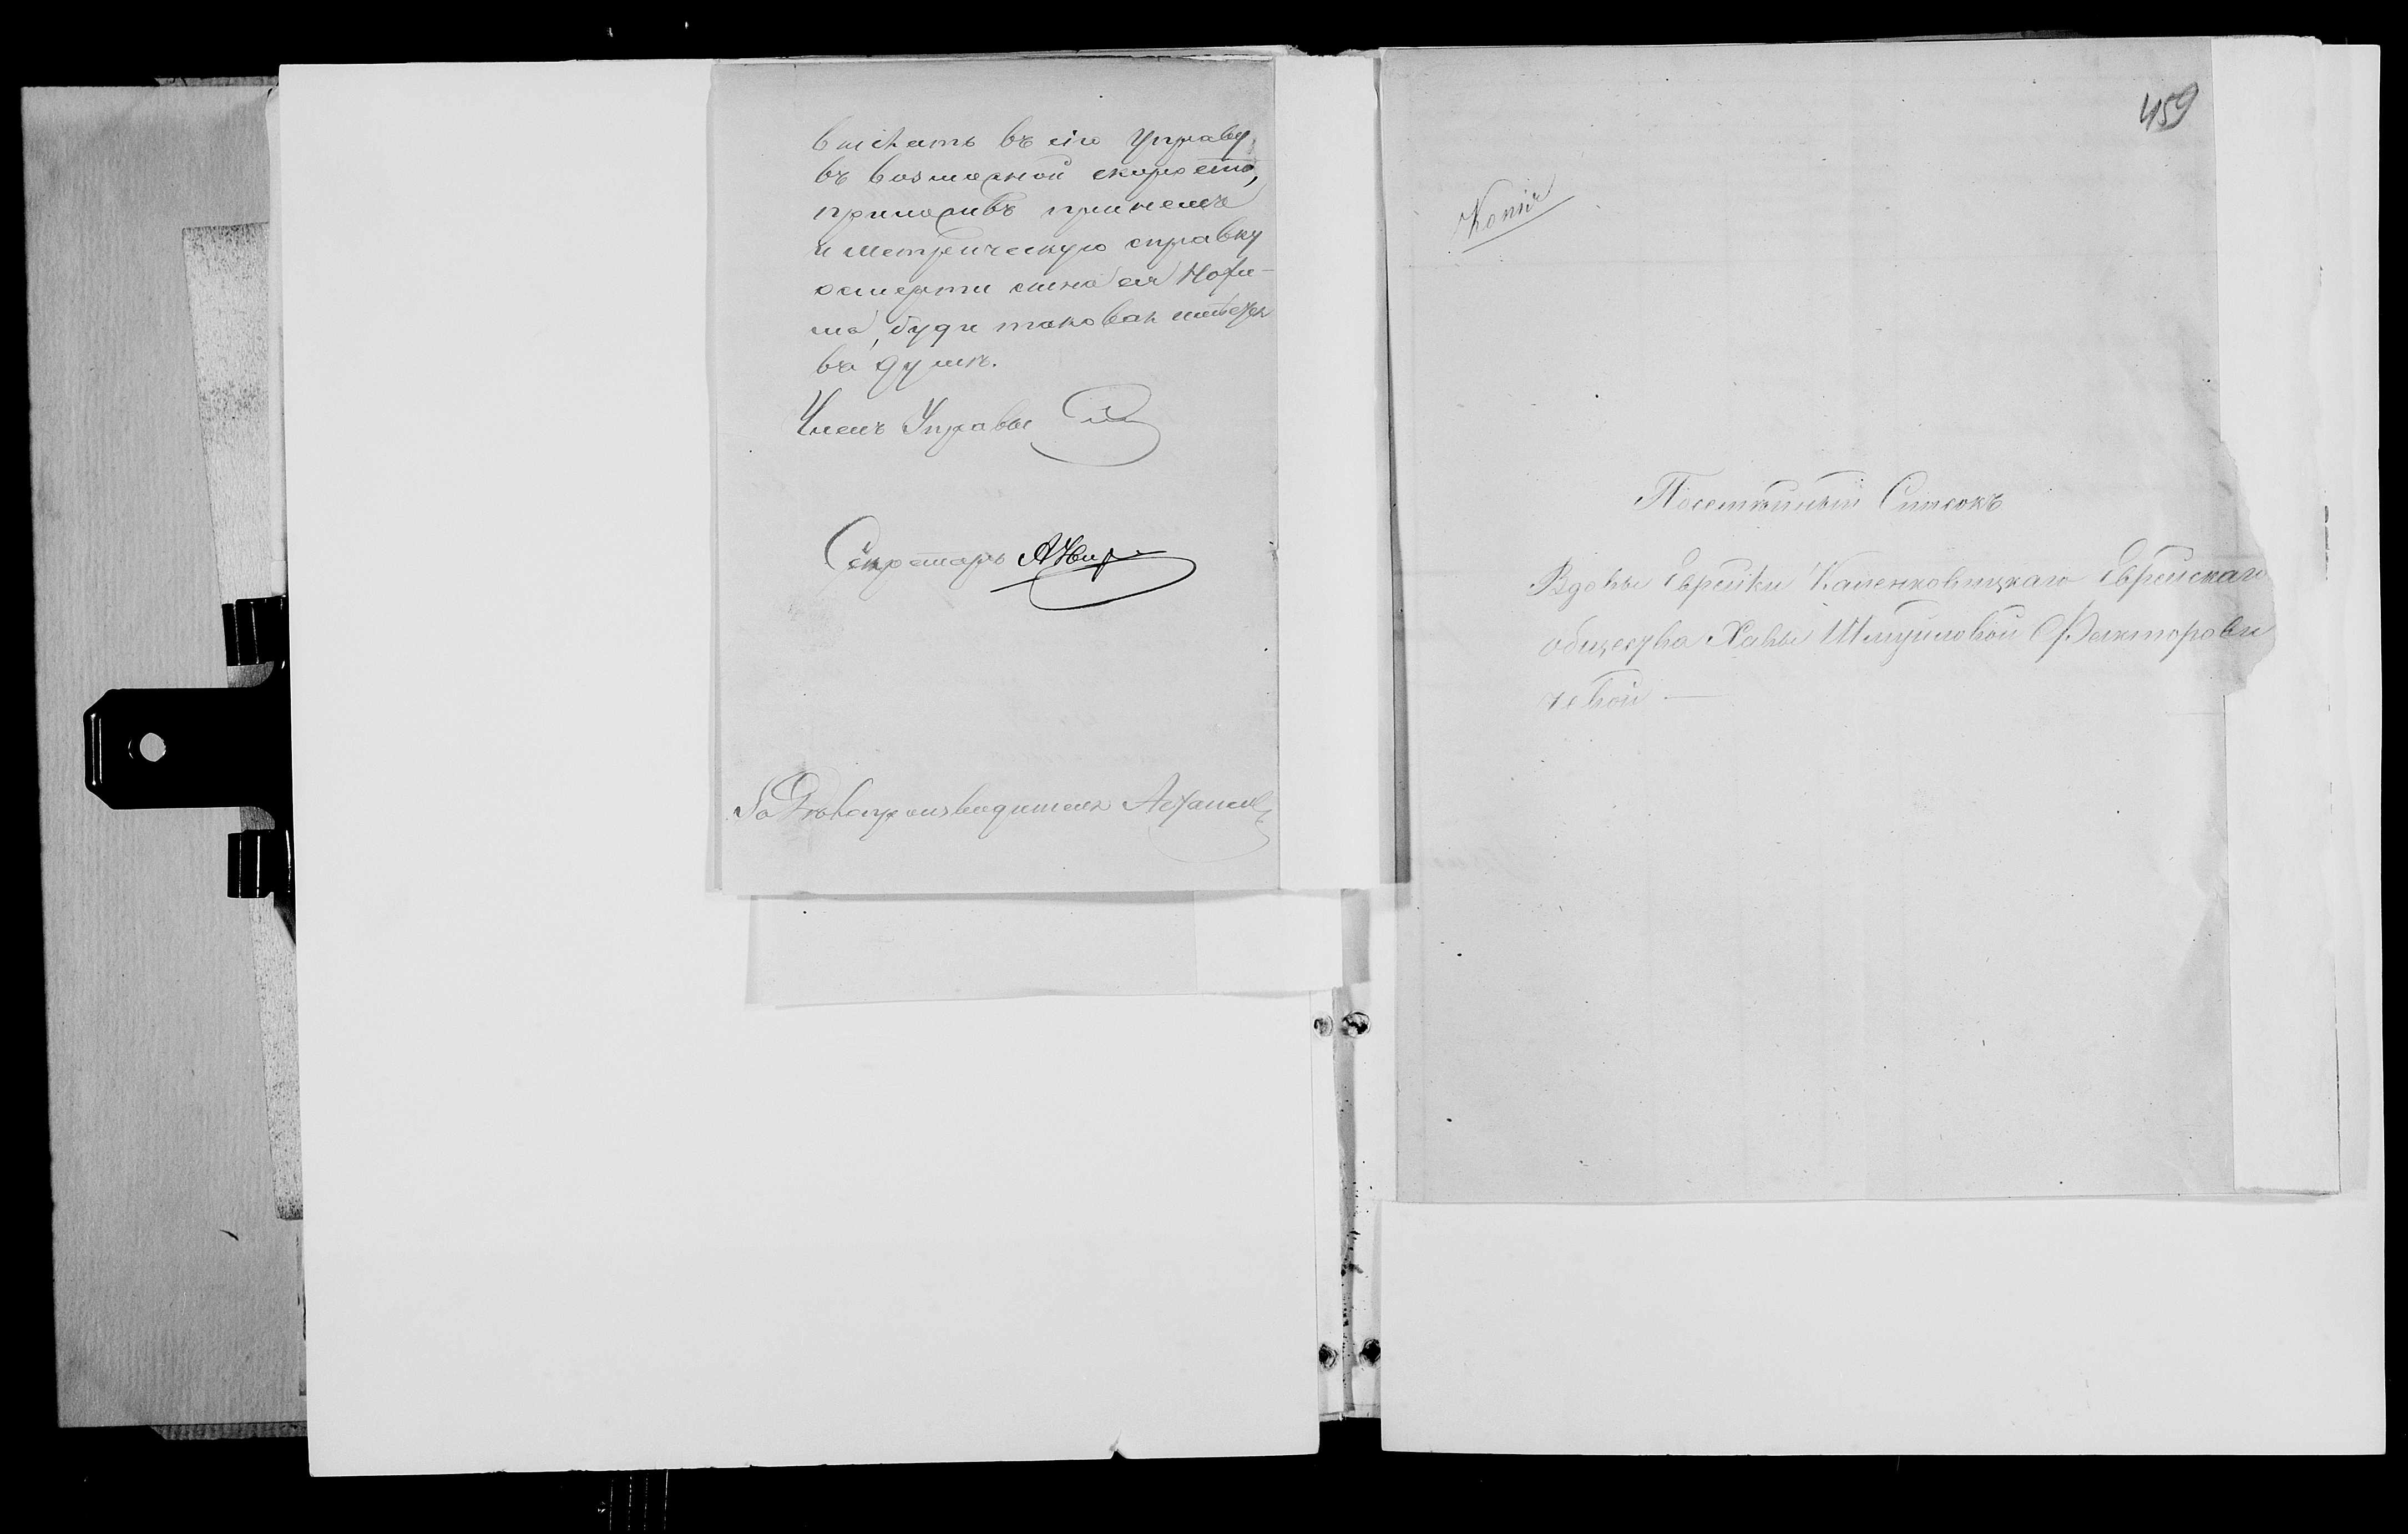 выслать въ сію Управу,
въ возможной скорости,
приложивъ при немъ
и метрическую справку
о смерти сына ея Нохи-
ма, буди таковая имѣется
въ думѣ.
Членъ Управы
Секретарь
За Дѣлопроизводителя
459
Копія
Посемейный Списокъ
Вдовы Еврейки Еврейскаго
общества Ханы Шмуиловой Факторови
чевой —